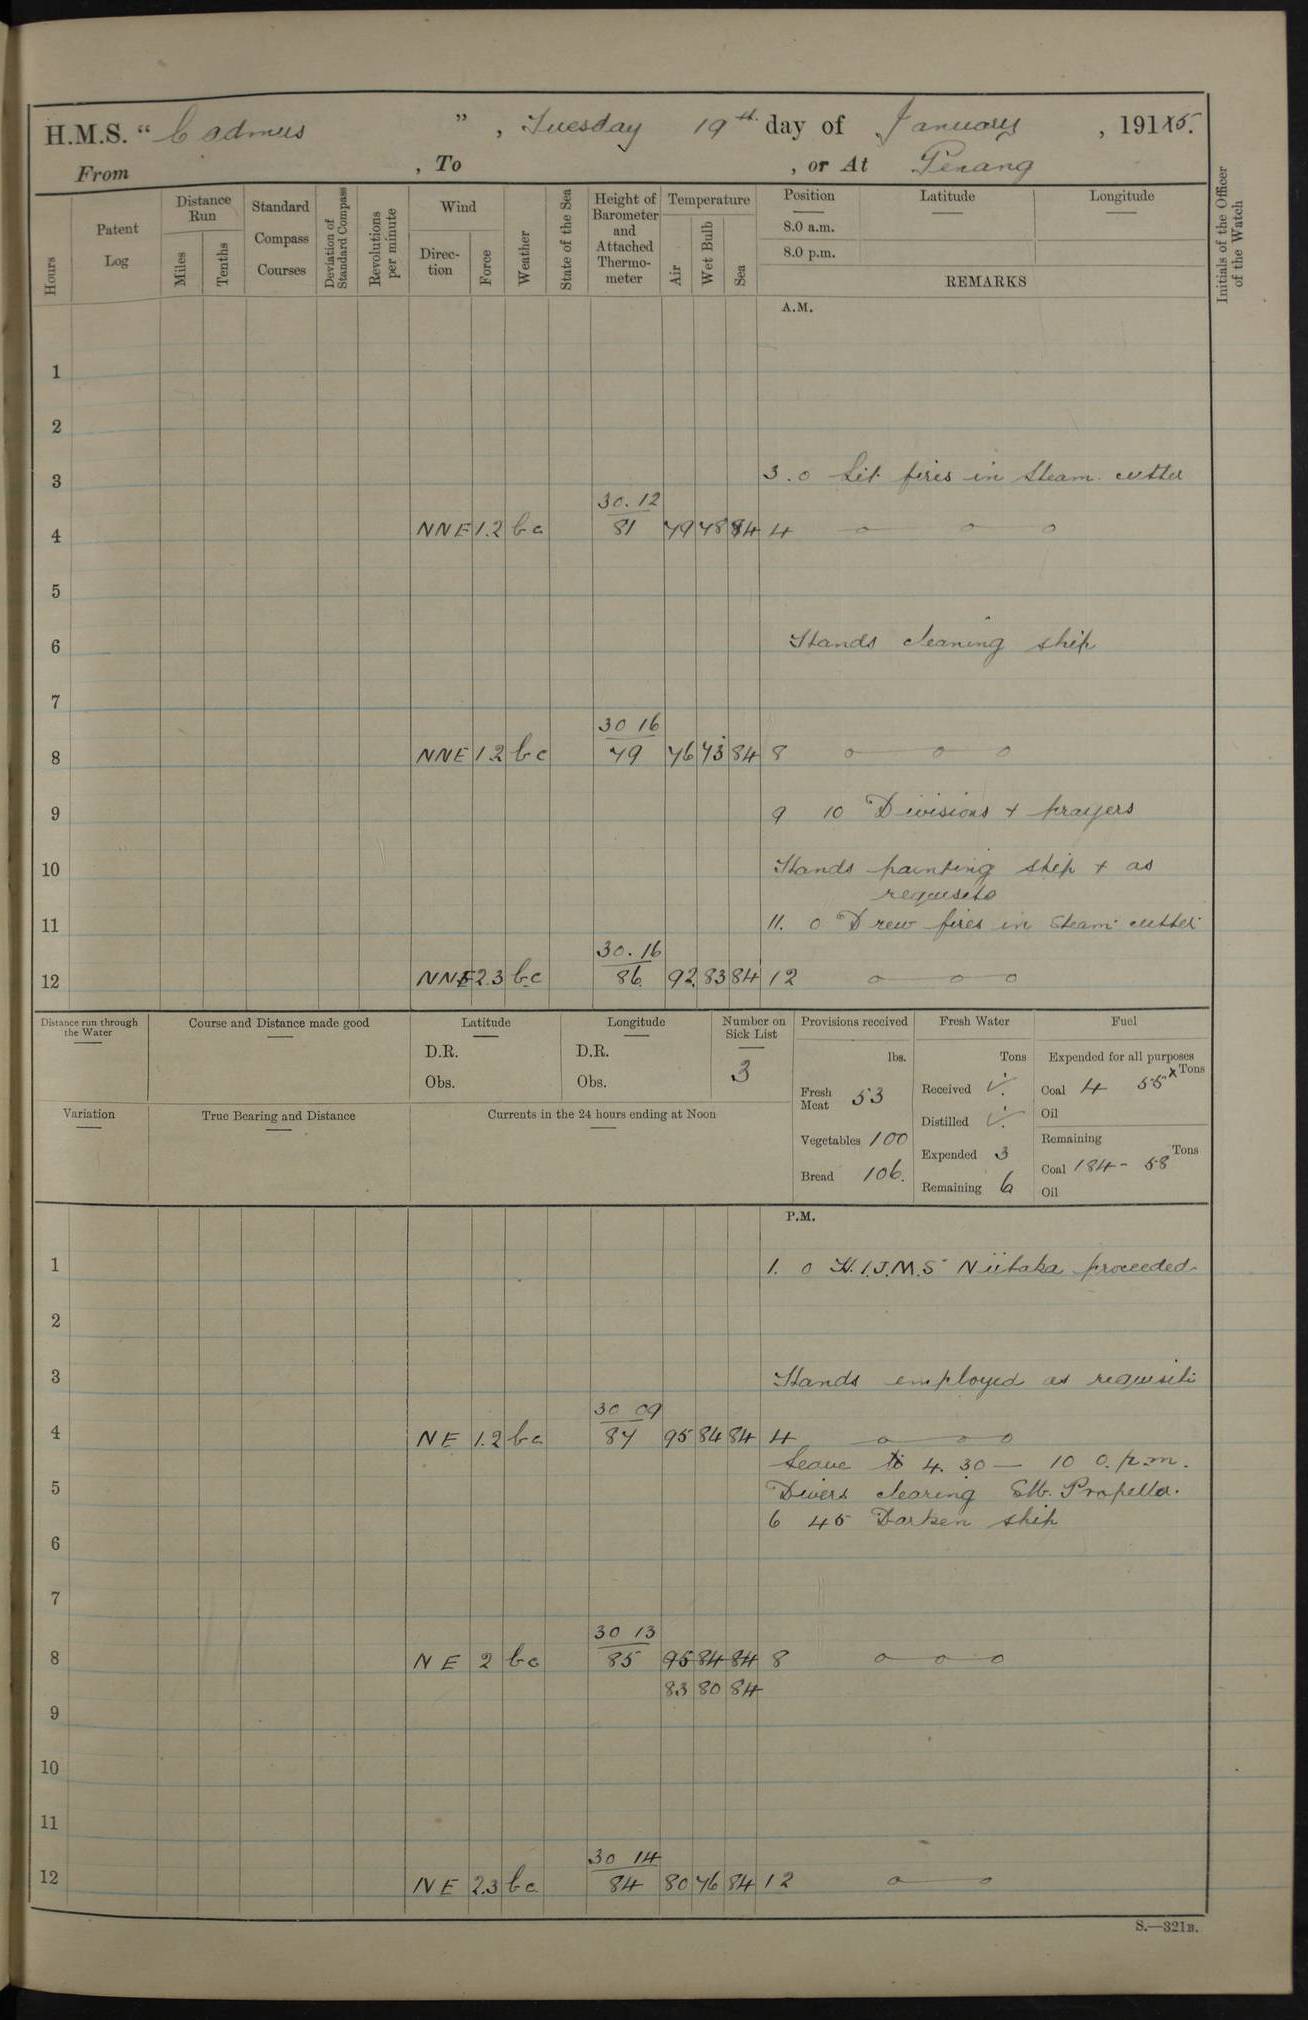 H.M.S. “ Cadmus ” , Tuesday 19th day of January , 1915.
From , To , or At Penang
Hours
Patent Log
Distance Run
Miles
Tenths
Standard Compass Courses
Deviation of Standard Compass
Revolutions per minute
Wind
Direction
Force
Weather
State of the Sea
Height of Barometer and Attached Thermometer
Temperature
Air
Wet Bulb
Sea
Position Latitude Longitude
8.0 a.m.
8.0 p.m.
REMARKS
Initials of the Officer of the Watch
A.M.
1
2
3 3.0 Lit fires in Steam cutter
30.12
4 NNE 1.2 bc 81 79 78 84 4
5
6 Hands cleaning ship
7
30 16
8 NNE 1 2 bc 79 76 73 84 8
9 9 10 Divisions + prayers
10 Hands painting ship + as
requisite
11 11. 0 Drew fires in Steam cutter
30.16
12 NNE 2.3 bc 86 92 83 84 12
Distance run through the Water
Course and Distance made good
Latitude
D.R.
Obs.
Longitude
D.R.
Obs.
Number on Sick List
3
Provisions received
lbs.
Fresh Meat 53
Vegetables 100
Bread 106.
Fresh Water
Tons
Received
Distilled
Expended 3
Remaining 6
Fuel
Expended for all purposes
Tons
Coal 4 55x
Oil
Remaining
Tons
Coal 184 - 58
Oil
Variation
True Bearing and Distance
Currents in the 24 hours ending at Noon
P.M.
1 1. 0 H.I.J.M.S Niitaka proceeded
2
3 Hands employed as requisite
30 09
4 NE 1.2 bc 87 95 84 84 4
Leave to 4.30 — 10 0. p.m.
5 Divers clearing Stb. Propeller.
6 45 Darken ship
6
7
30 13
8 NE 2 bc 85 95 84 84 8
83 80 84
9
10
11
30 14
12 NE 2.3 bc 84 80 76 84 12
S.—321B.